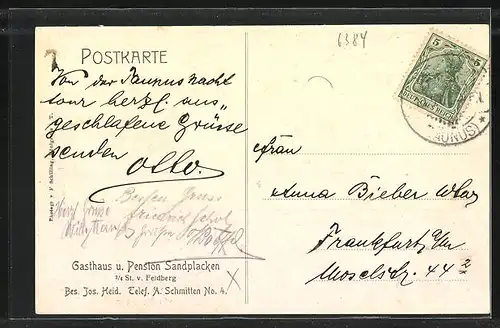 6384
POSTKARTE
Von der Taunusnacht
tour herzl. aus„
geschlafene Grüsse
senden
Otto.
Besten Gruss
Gasthaus u. Pension Sandplacken
¾ St. v. Feldberg
Bes. Jos. Heid. Telef. A. Schmitten No. 4.
5 5
DEUTSCHES REICH
(TAUNUS)
Frau
Anna Bieber Ww.
Frankfurt a/M
Moselstr. 44 2